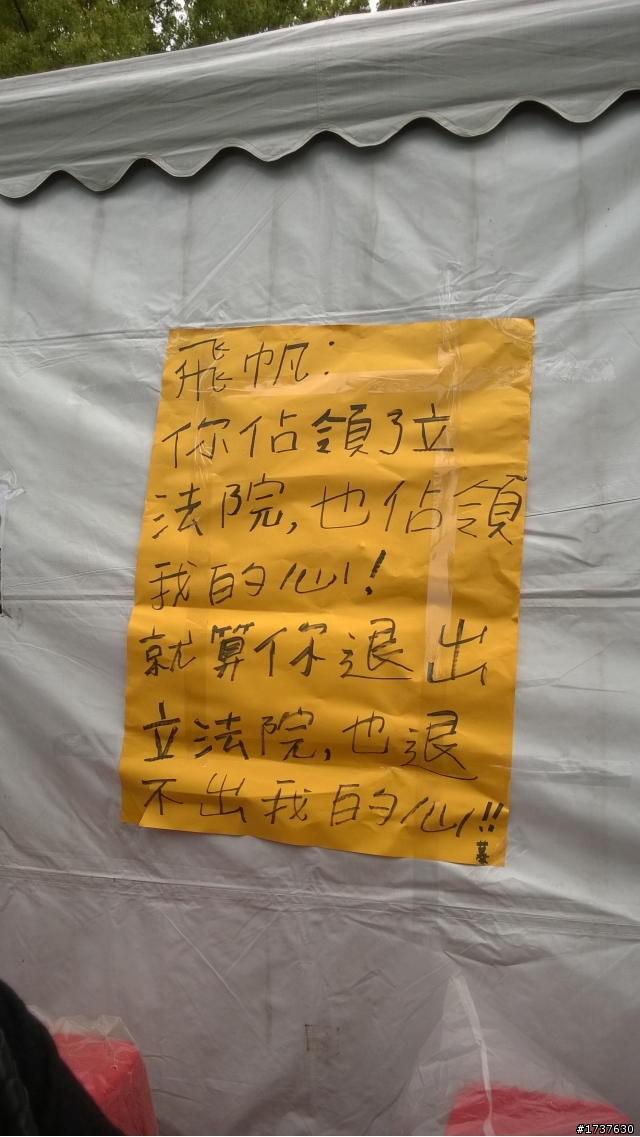 飛帆：
你佔領了立
法院,也佔領
我的心!
就算你退出
立法院,也退
不出我的心!!
#1737630